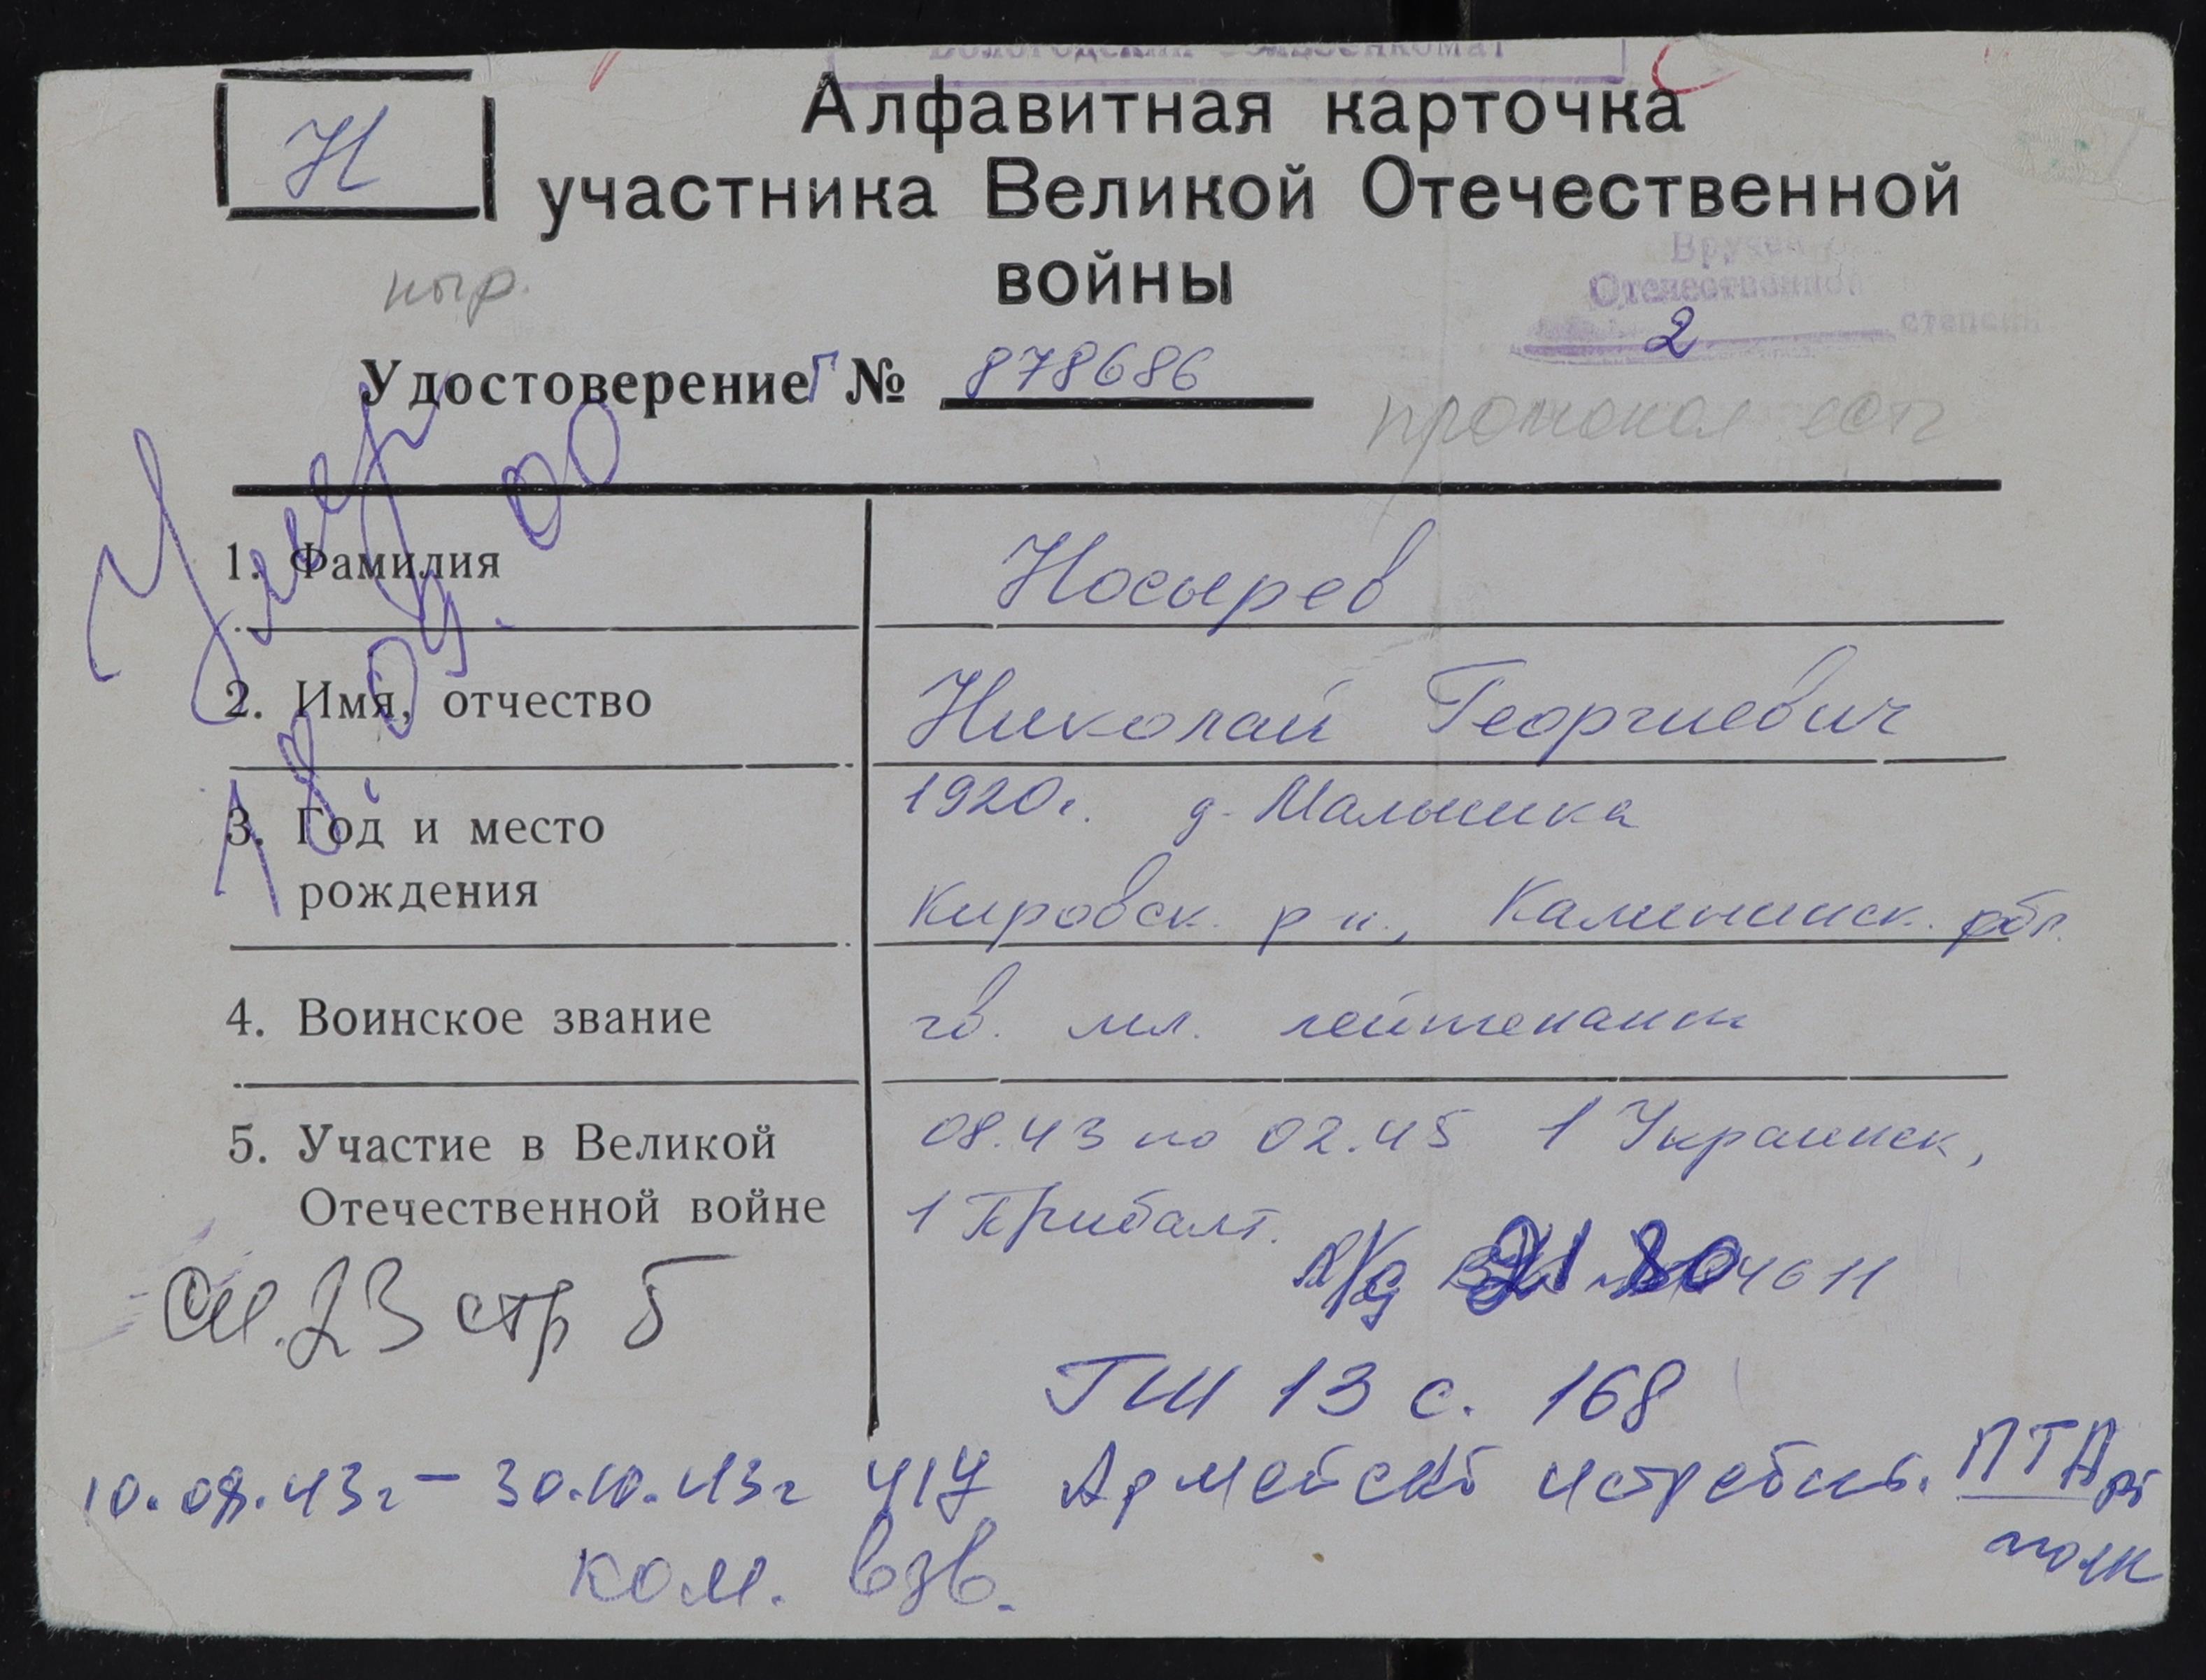 Н
Алфавитная карточка
участника Великой Отечественной
войны
ныр.
Вручен
Отечественной
2 степени
Удостоверение Г № 878686
протокол есть
Умер
18.04.00
1. Фамилия Носырев
2. Имя, отчество Николай Георгиевич
3. Год и место рождения 1920г. д. Малышка
Кировск. р-н., Калининск. обл.
4. Воинское звание гв. мл. лейтенант
5. Участие в Великой Отечественной войне 08.43 по 02.45 1 Украинск,
1 Прибалт.
л/д 21 80
См. 23 стр 5
ГШ 13 с. 168
10.08.43г – 30.10.43г 417 Армейский истребит. ПТАрт
полк
ком. взв.